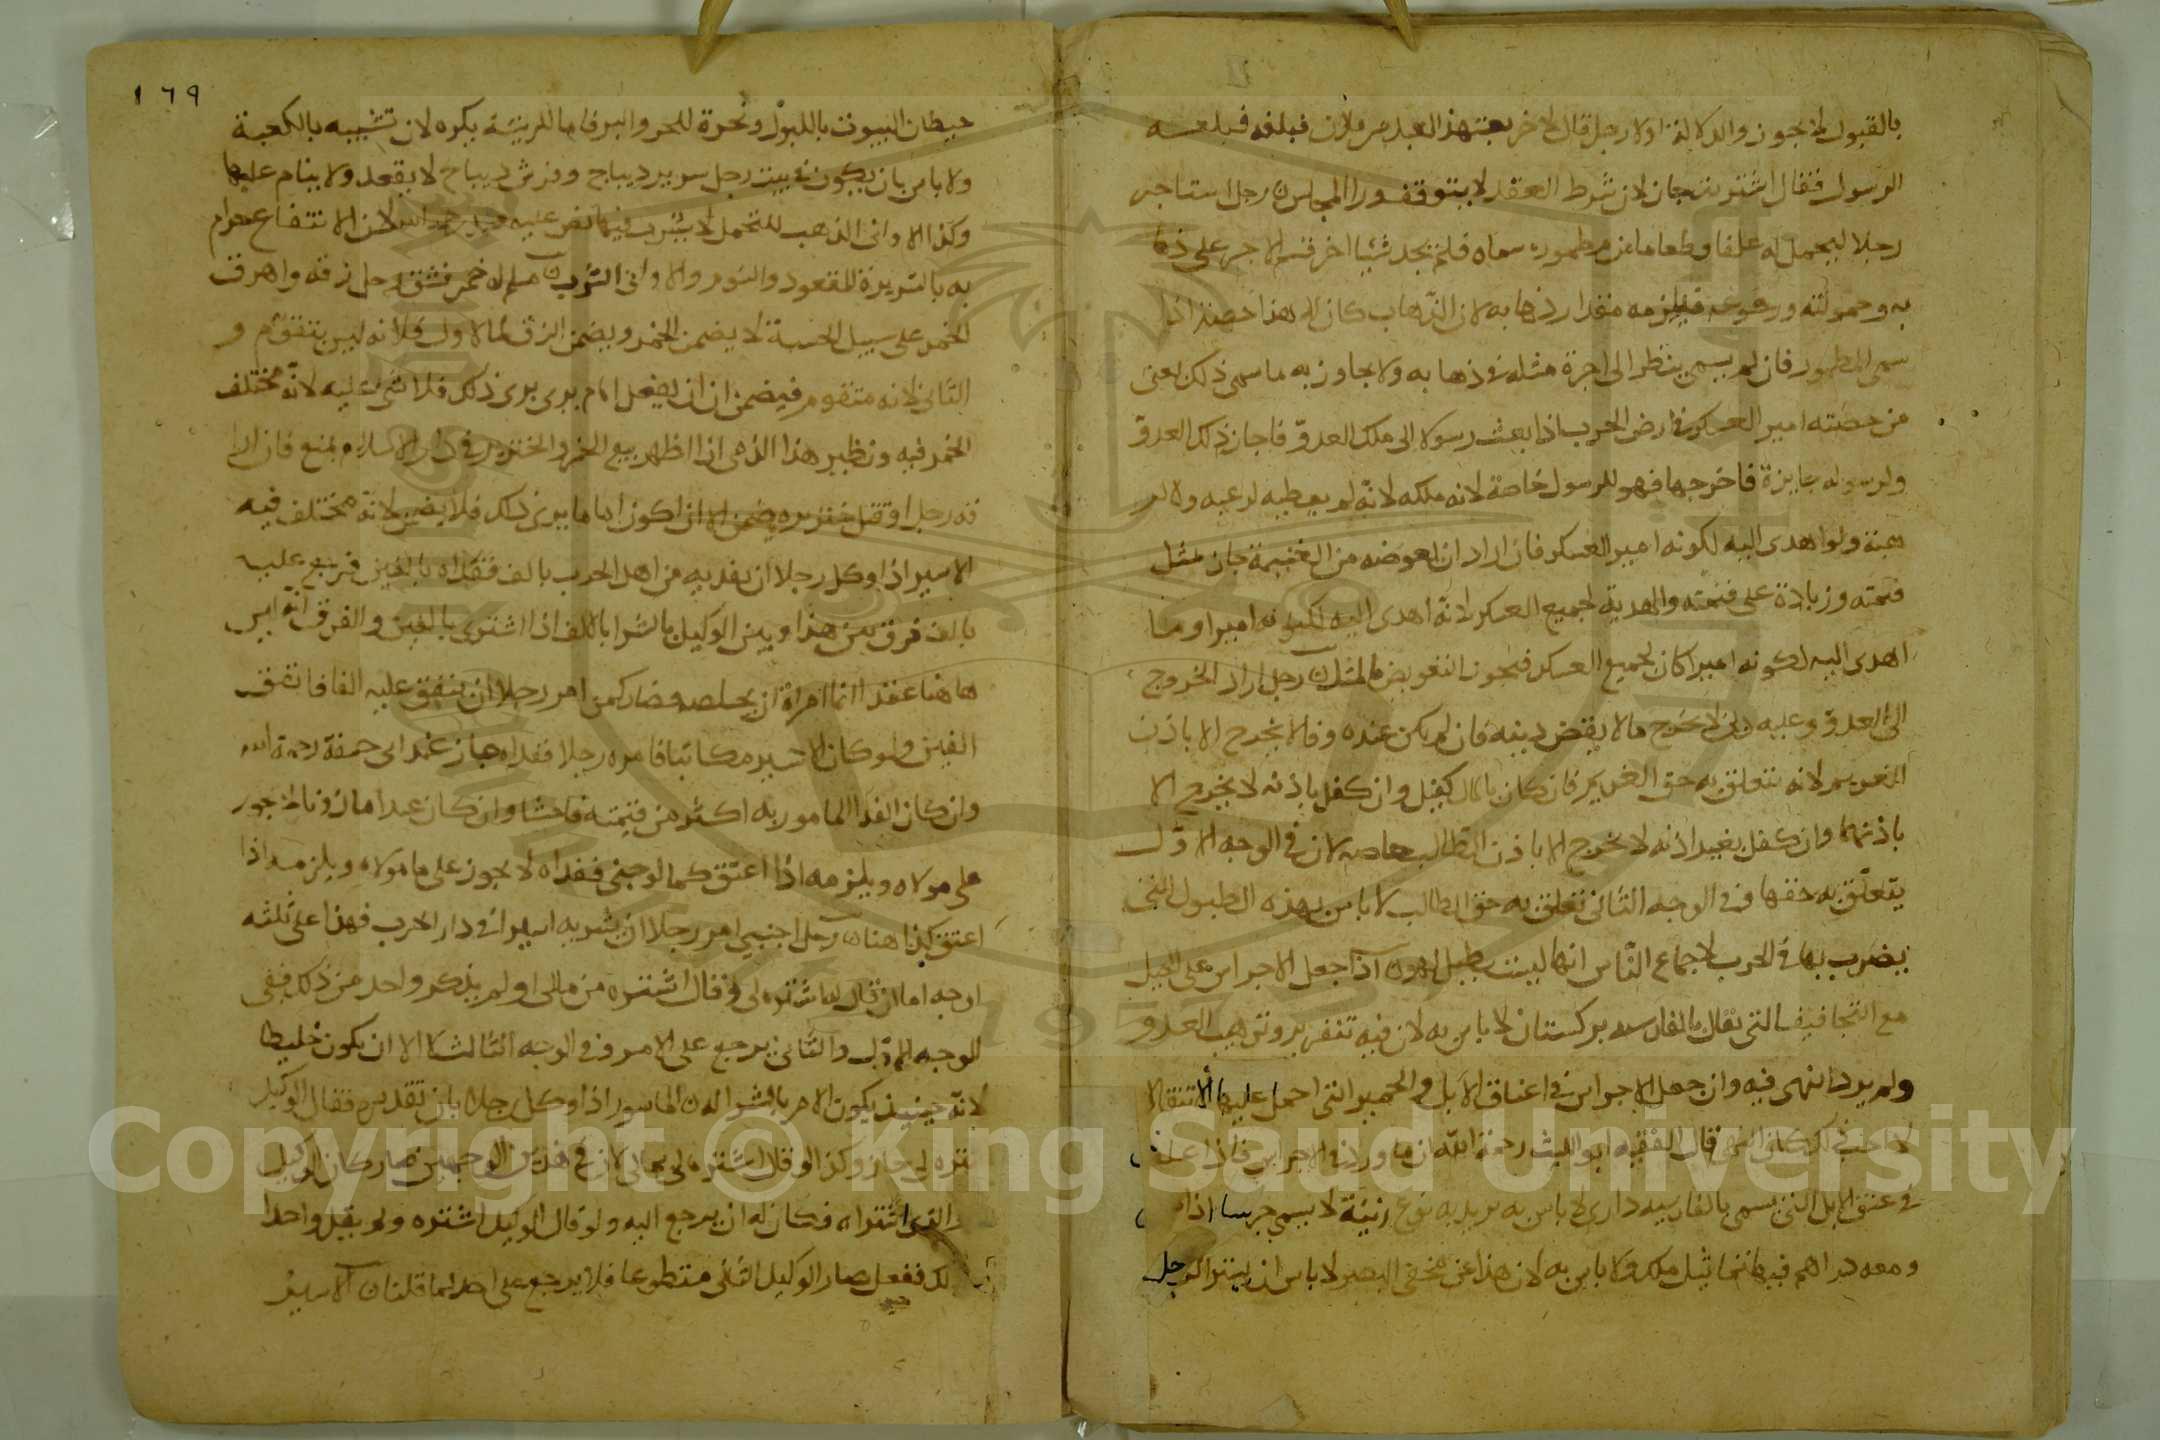 بالقبول لم يجوز والدلالة اولا رجل قال لاخر بعت هذا العبد من فلان فبلغه فبلغه
الرسول فقال اشتريت جاز لان شرط العقد لا يتوقف ورا المجلس رجل استاجر
رجلا ليحمل له علفا وطعاما من مطموره سماه فلم يجد شيا اخر قسم الاجر على ذها
به وحمولته ورجوعه فيلزمه مقدار ذهابه لان الذهاب كان له هذا اذا
سمى المطمور فان لم يسمى ينظر الى اجرة مثله في ذهابه ولا يجاوز به ما سمى ذلك يعنى
من حصته امير العسكر في ارض الحرب اذا بعث رسولا الى ملك العدو فاجاز ذلك العدو
ولرسوله جايزة فاخرجها فهو للرسول خاصة لانه ملكه لانه لم يعطيه لرعبه
هبة ولو اهدى اليه لكونه امير العسكر فان اراد ان يعوضه من الغنيمة جاز مثل
قيمته وزيادة على قيمته والهدية لجميع العسكر لانه اهدى اليه لكونه اميرا وما
اهدى اليه لكونه اميرا كان لجميع العسكر فيجوز التعويض رجل اراد الخروج
الى العدو وعليه دين لا يخرج مالا يقض دينه فان لم يكن عنده وفا لا يخرج الا باذن
الغريم لانه تتعلق به حق الغريم فان كان بالمال كفيل وان كفل باذنه لا يخرج الا
باذنهما وان كفل بغير اذنه لا يخرج الا باذن الطالب خاصه لان في الوجه الاول
يتعلق به حقهما وفي الوجه الثاني تعلق به حق الطالب لا باس بهذه الطبول التي
يضرب بها في الحرب لاجماع الناس انها ليست بطبل لهو اذا جعل الاجراس على الخيل
مع التجافيف التي يقال بالفارسيه بركستان لا باس به لان فيه تنفير وترهيب العدو
ولم يرد النهي فيه وان جعل الاجراس في اعناق الابل والحمير التي احمل عليها الاثقال
قال الفقيه ابو الليث رحمة الله ان ما ورد في الاجراس
في عنق الابل التي يسمى بالفارسيه داري لا باس به يريد به نوع زينة لا يسمى جرسا اذا
ومعه دراهم فيها تماثيل ملك لا باس به لان هذا عن البصر لا باس ان يستر الرجل
١٦٩
حيطان البيوت باللبود ونحوه للحر والبرد فاما للزينة يكره لان تشبيه بالكعبة
ولا باس بان يكون في بيت رجل سرير ديباج وفرش ديباج لا يقعد ولا ينام عليها
وكذا الاواني الذهب للتجمل لا يشرب فيها نص عليه محمد رحمه الله لان الانتفاع حرام
به بالسريرة للقعود والنوم والاواني الشرب مسلم له خمر فشق رجل زقه واهرق
الخمر على سبيل الحسبة لا يضمن الخمر ويضمن الزق اما الاول فلانه ليس بمتقوم و
الثاني لانه متقوم فيضمن الا ان يفعل امام يرى يرى ذلك فلا شي عليه لانه مختلف
الخمر فيه ونظير هذا الذمي اذا اظهر بيع الخمر والخنزير في دار الاسلام يمنع فان ارا
قه رجل او قتل خنزيره يضمن الا ان اكون اماما يرى ذلك فلا يضمن لانه مختلف فيه
الاسير اذا وكل رجلا ان يفديه من اهل الحرب بالف ففداه بالفين يرجع عليه
بالف فرق بين هذا وبين الوكيل بالشرا بالالف اذا اشترى بالفين والفرق انه ليس
هاهنا عقد انما امراة ان يخلصه فصار كمن امر رجلا ان ينفق عليه الفا فانفق
الفين ولو كان الاسير مكاتبا فامره رجلا ففداه جاز عند ابي حنيفة رحمة الله
وان كان الفدا المامور به اكثر من قيمته فاحشا وان كان عبدا ماذونا لم يجوز
على مولاه ويلزمه اذا اعتق كما لو جنى ففداه لا يجوز على ما مولاه ويلزمه اذا
اعتق كذا هنا رجل اجنبي امر رجلا ان يشتريه اسيرا في دار الحرب فهذا على ثلثه
اوجه اما ان قال له اشتره لي او قال اشتره من مالي او لم يذكر واحد من ذلك ففي
الوجه الاول والثاني يرجع على الامر وفي الوجه الثالث لا الا ان يكون خليطا
لانه حينيذ يكون الامر بالشرا له الماسور اذا وكل رجلا بان تفديه فقال الوكيل
اشتره لي جاز وكذا لو قال اشتره لي بمالي لان في هذين الوجهين صار كان الوكيل
الذي اشتراه فكان له ان يرجع اليه ولو قال الوكيل اشتره ولم يقل واحدا
ذلك ففعل صار الوكيل الثاني متطوعا فلا يرجع على احد لما قلنا الاسير
Copyright © King Saud University